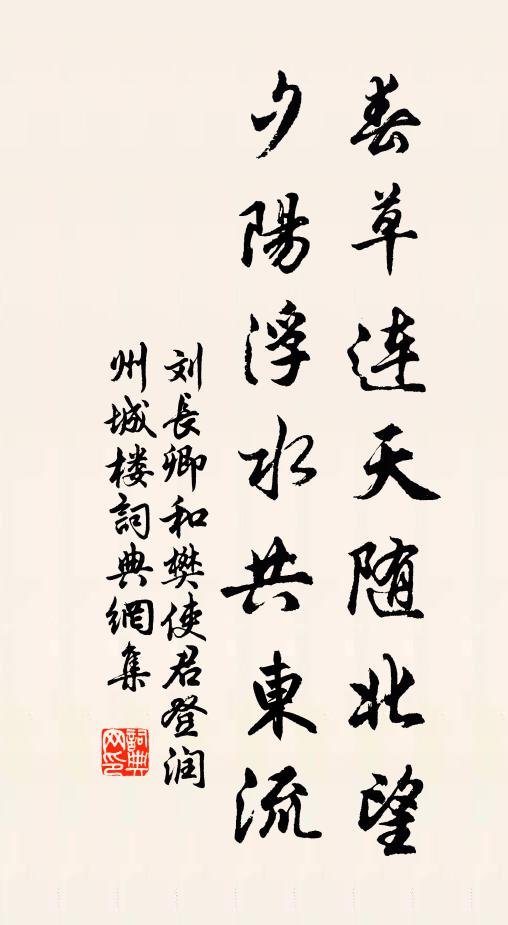 春草连天随北望
夕陽浮水共東流
刘長卿和樊使君登润
州城楼詞典網集
詞典
网印